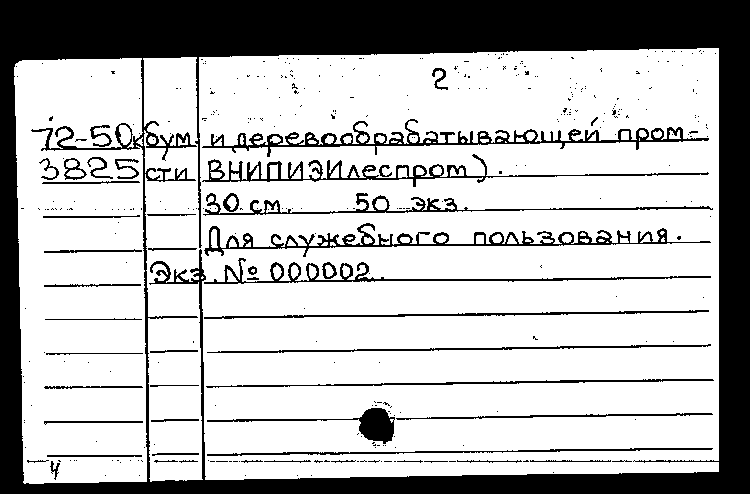 2
72-50к бум. и деревообрабатывающей пром-
3825 сти ВНИПИЭИлеспром).
30 см. 50 экз.
Для служебного пользования.
Экз. № 000002.
4